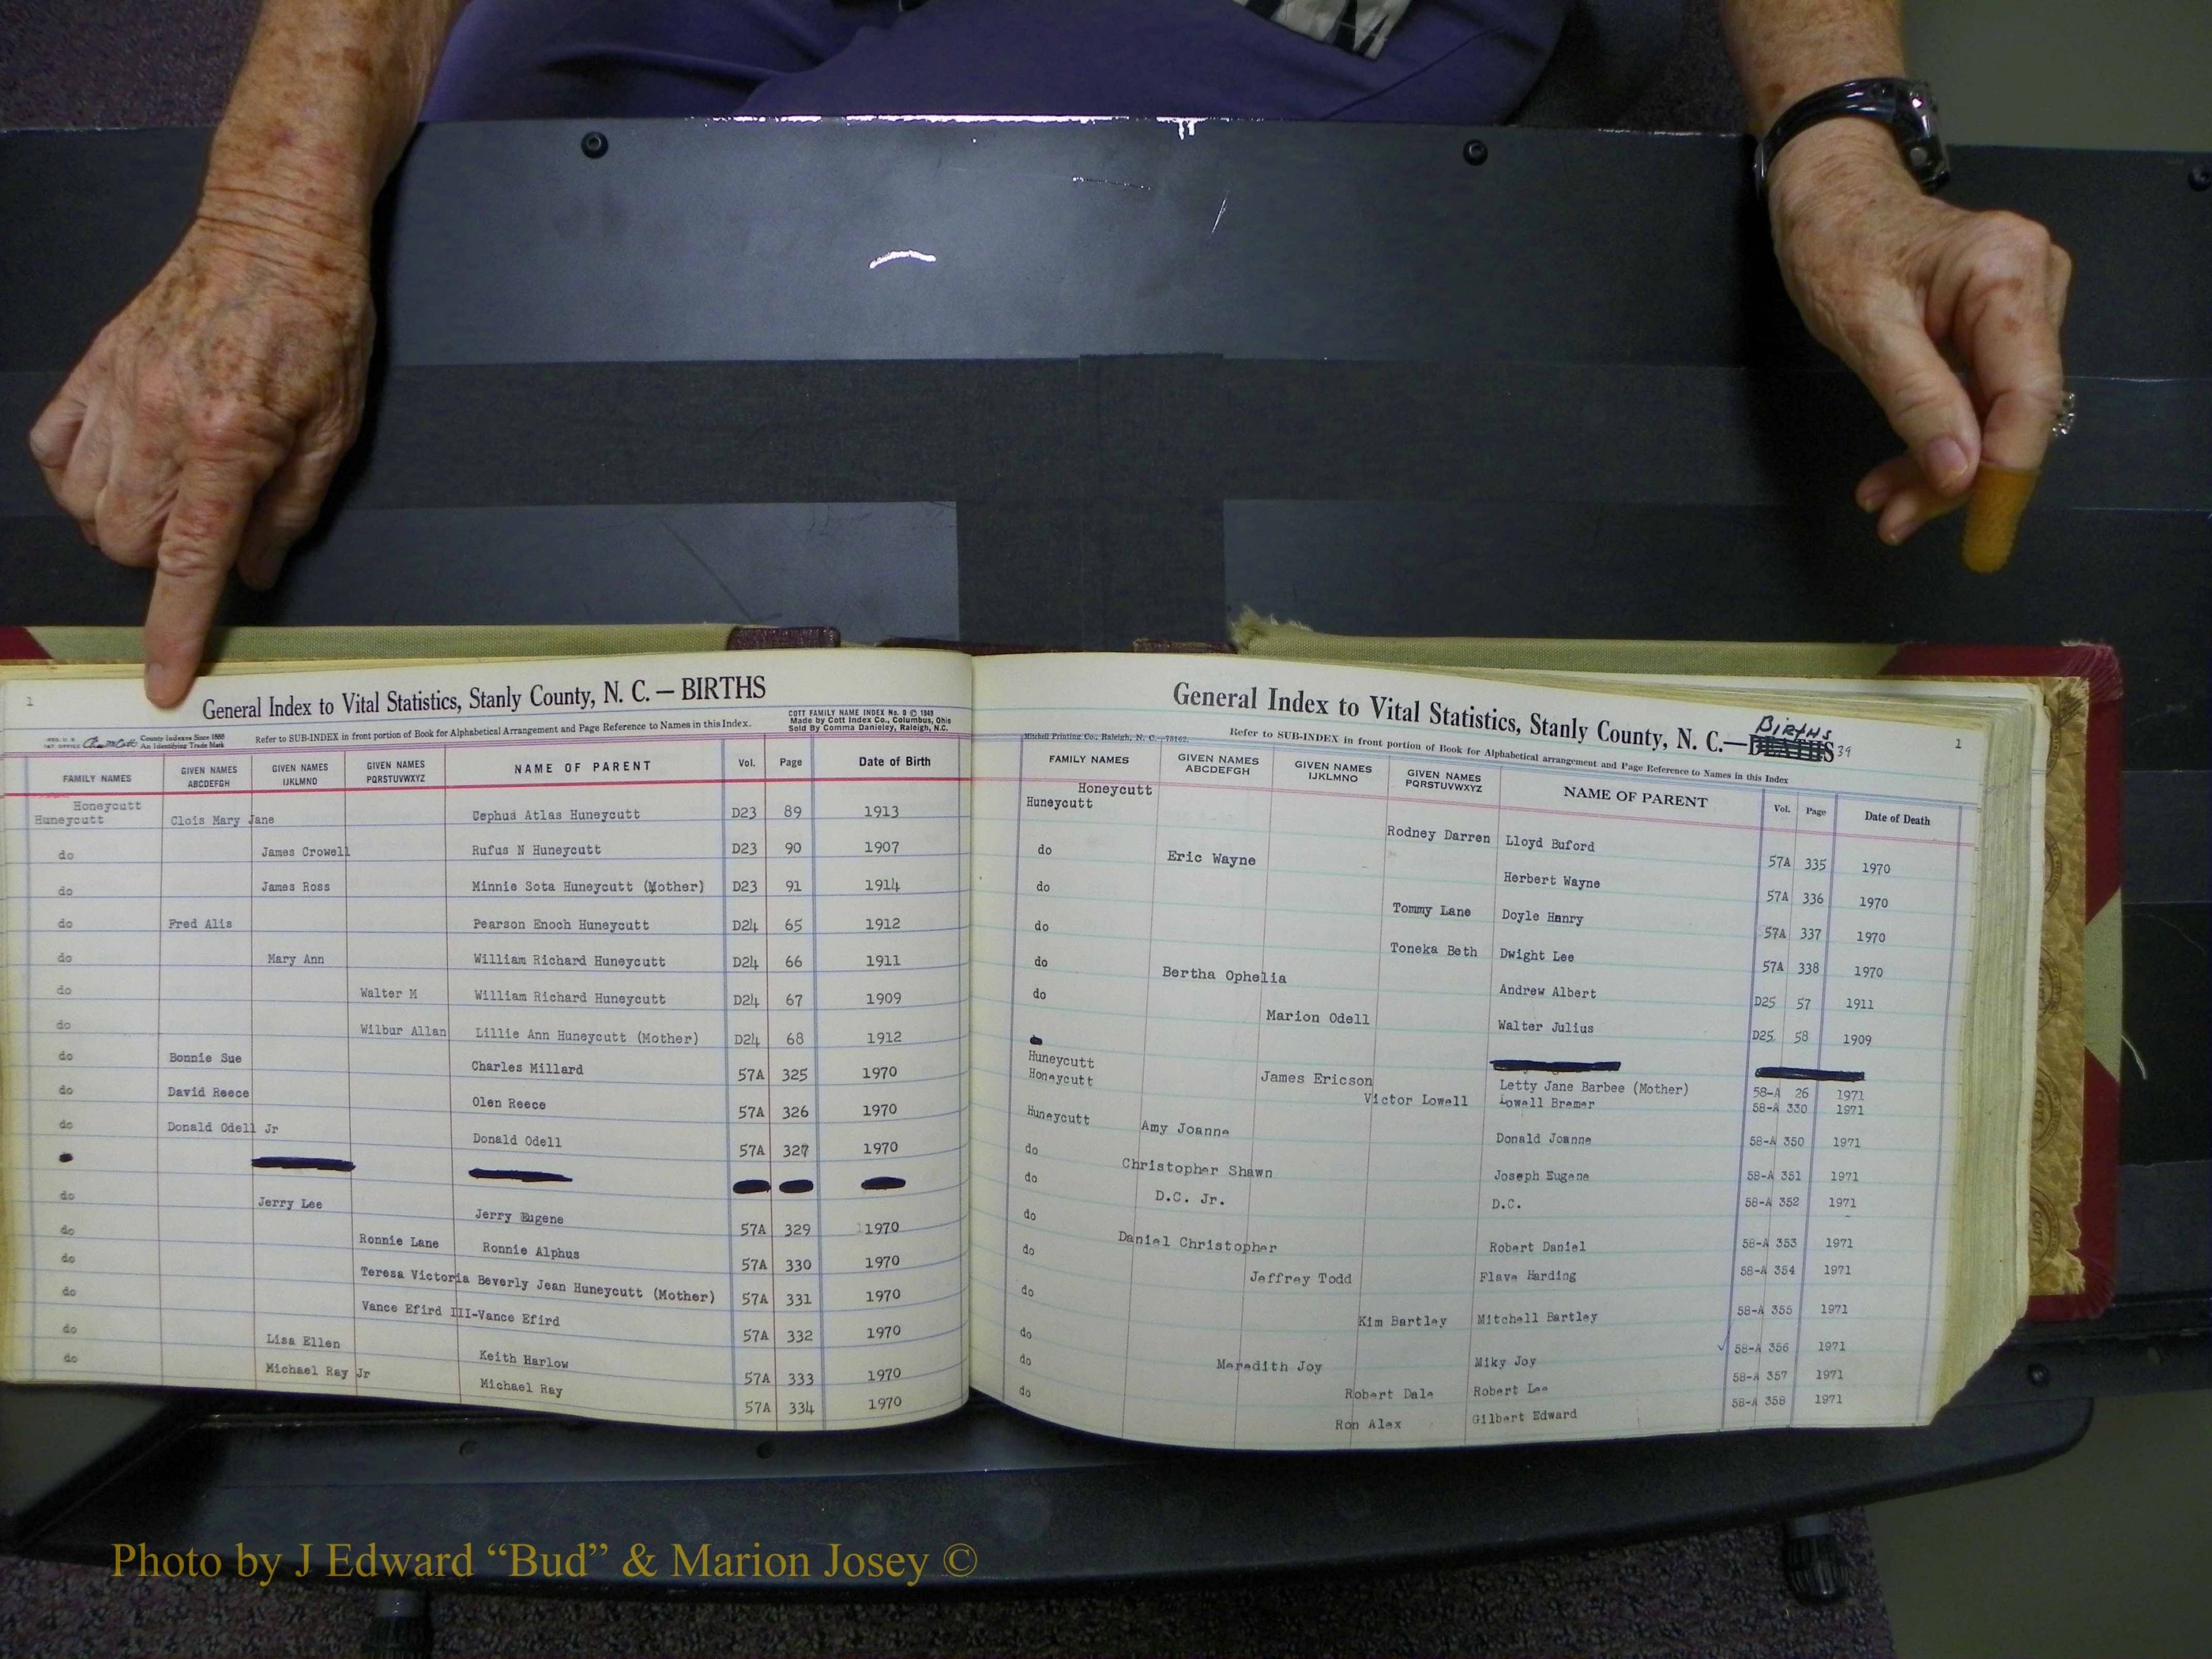 1
General Index to Vital Statistics, Stanly County, N. C. — BIRTHS
COTT FAMILY NAME INDEX No. 9 © 1949
Made by Cott Index Co., Columbus, Ohio
Sold By Comma Danieley, Raleigh, N.C.
REG. U. S.
PAT. OFFICE
County Indexes Since 1888
An Identifying Trade Mark
Refer to SUB-INDEX in front portion of Book for Alphabetical Arrangement and Page Reference to Names in this Index.
FAMILY NAMES GIVEN NAMES ABCDEFGH GIVEN NAMES IJKLMNO GIVEN NAMES PQRSTUVWXYZ NAME OF PARENT Vol. Page Date of Birth
Honeycutt
Huneycutt Clois Mary Jane Cephus Atlas Huneycutt D23 89 1913
do James Crowell Rufus N Huneycutt D23 90 1907
do James Ross Minnie Sota Huneycutt (Mother) D23 91 1914
do Fred Alis Pearson Enoch Huneycutt D24 65 1912
do Mary Ann William Richard Huneycutt D24 66 1911
do Walter M William Richard Huneycutt D24 67 1909
do Wilbur Allan Lillie Ann Huneycutt (Mother) D24 68 1912
do Bonnie Sue Charles Millard 57A 325 1970
do David Reece Olen Reece 57A 326 1970
do Donald Odell Jr Donald Odell 57A 327 1970
do Jerry Lee Jerry Eugene 57A 329 1970
do Ronnie Lane Ronnie Alphus 57A 330 1970
do Teresa Victoria Beverly Jean Huneycutt (Mother) 57A 331 1970
do Vance Efird III-Vance Efird 57A 332 1970
do Lisa Ellen Keith Harlow 57A 333 1970
do Michael Ray Jr Michael Ray 57A 334 1970
General Index to Vital Statistics, Stanly County, N. C.—DEATHS
Births
39
1
Mitchell Printing Co., Raleigh, N. C.—75162.
Refer to SUB-INDEX in front portion of Book for Alphabetical arrangement and Page Reference to Names in this Index
FAMILY NAMES GIVEN NAMES ABCDEFGH GIVEN NAMES IJKLMNO GIVEN NAMES PQRSTUVWXYZ NAME OF PARENT Vol. Page Date of Death
Honeycutt
Huneycutt Rodney Darren Lloyd Buford 57A 335 1970
do Eric Wayne Herbert Wayne 57A 336 1970
do Tommy Lane Doyle Henry 57A 337 1970
do Toneka Beth Dwight Lee 57A 338 1970
do Bertha Ophelia Andrew Albert D25 57 1911
do Marion Odell Walter Julius D25 58 1909
Huneycutt James Ericson Letty Jane Barbee (Mother) 58-A 26 1971
Honeycutt Victor Lowell Lowell Bremer 58-A 330 1971
Huneycutt Amy Joanne Donald Joanne 58-A 350 1971
do Christopher Shawn Joseph Eugene 58-A 351 1971
do D.C. Jr. D.C. 58-A 352 1971
do Daniel Christopher Robert Daniel 58-A 353 1971
do Jeffrey Todd Flave Harding 58-A 354 1971
do Kim Bartley Mitchell Bartley 58-A 355 1971
do Meredith Joy Miky Joy 58-A 356 1971
do Robert Dale Robert Lee 58-A 357 1971
do Ron Alex Gilbert Edward 58-A 358 1971
Photo by J Edward “Bud” & Marion Josey ©